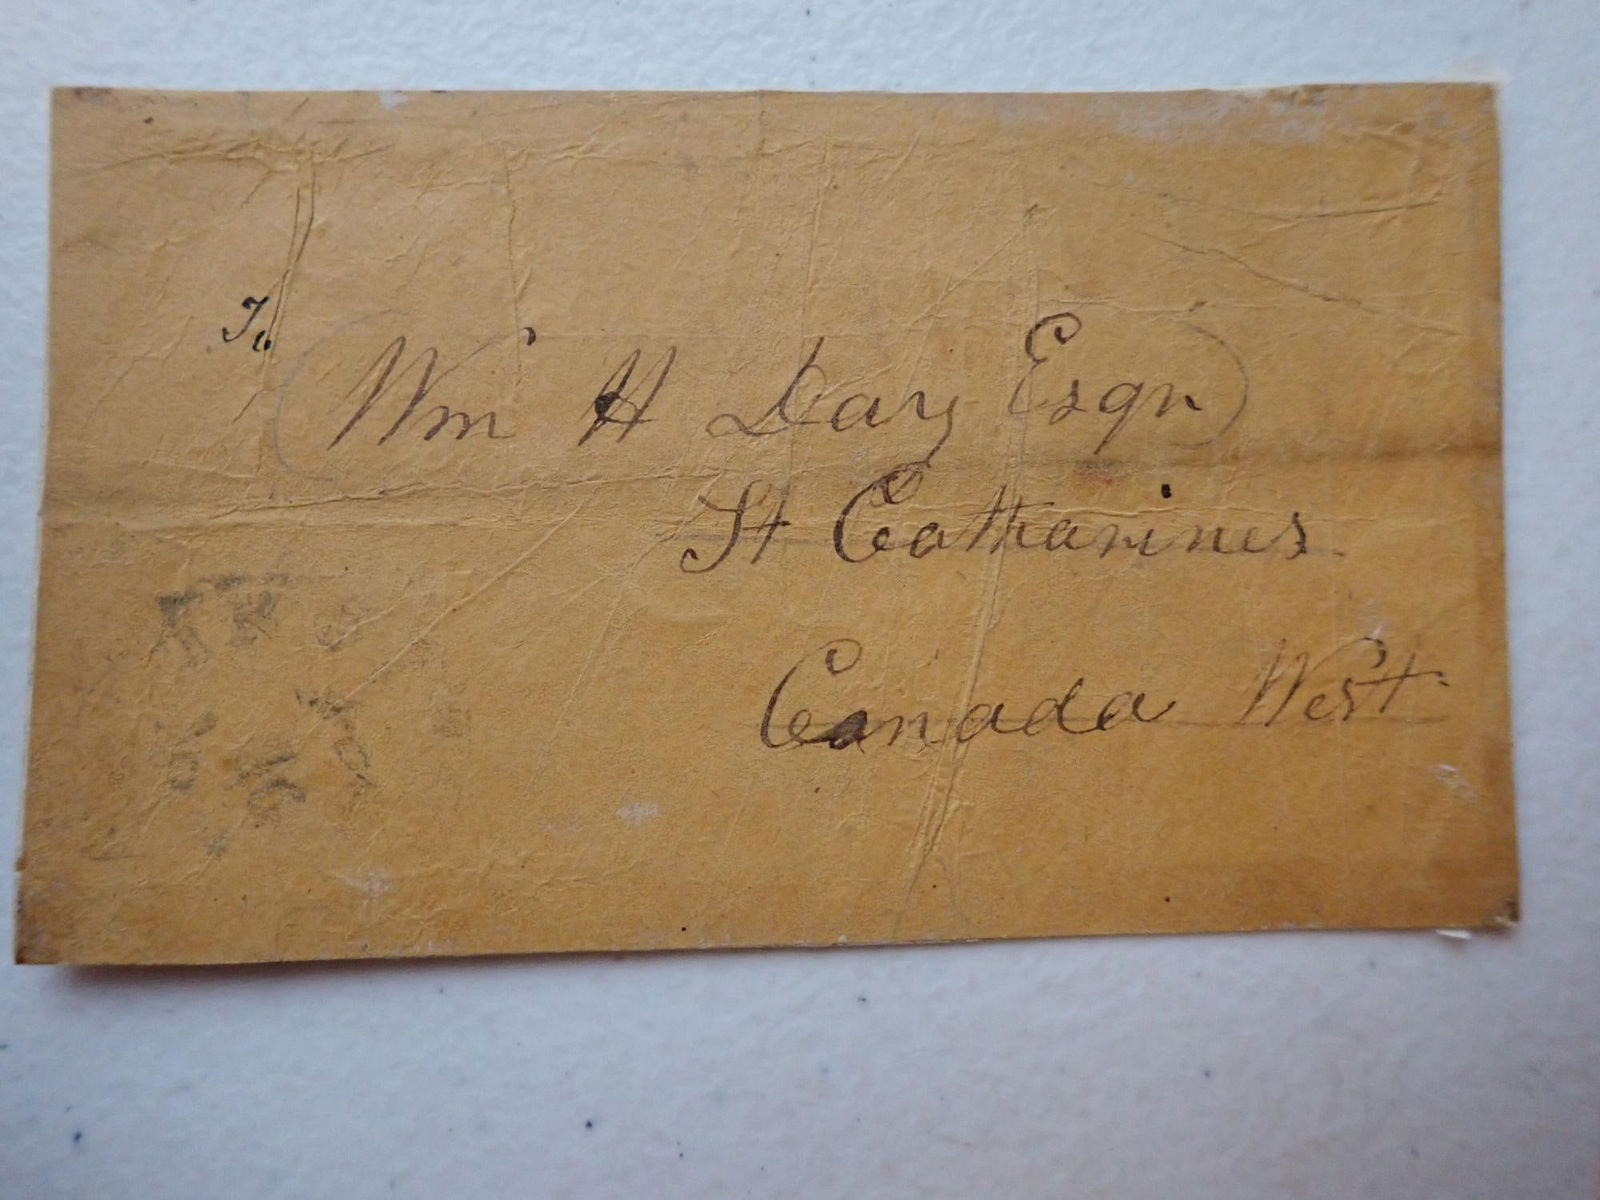 To
Wm H Day Esqr
St Catharines
Canada West